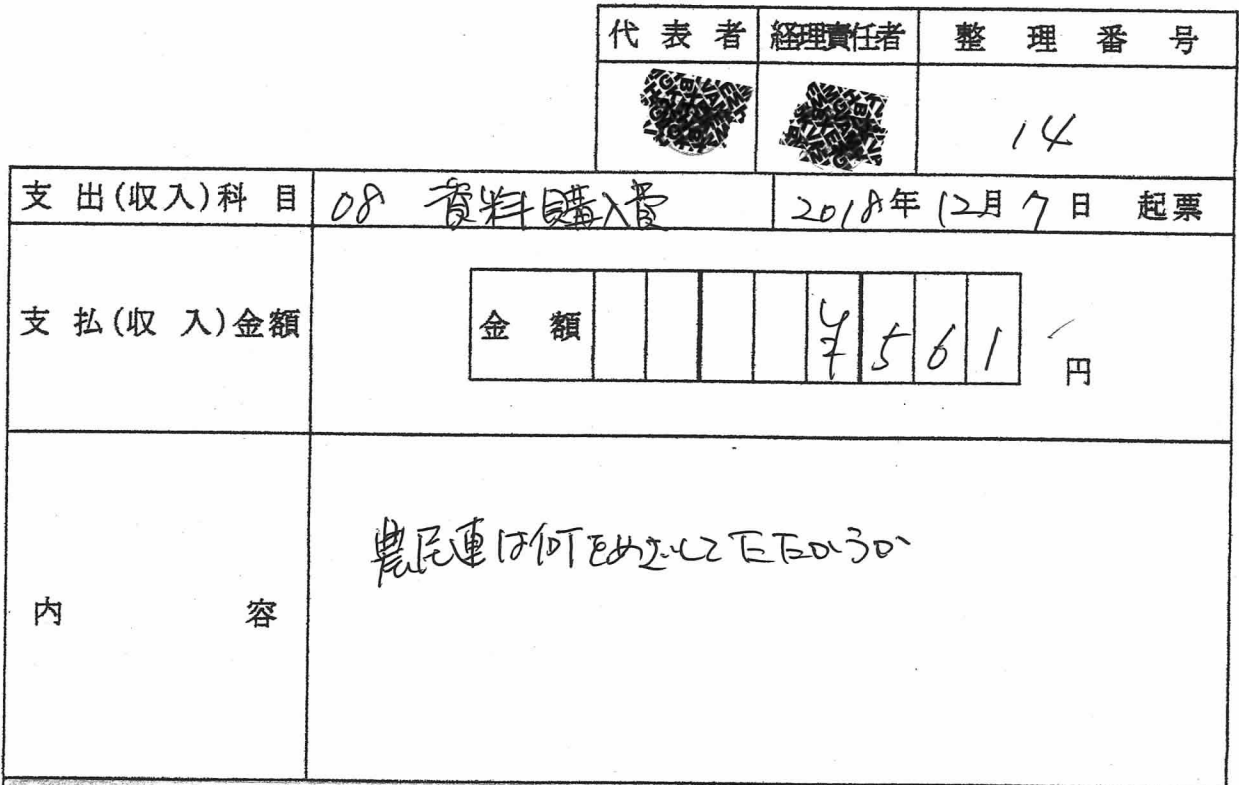 代表者 経理責任者 整理番号
14
支出(収入)科目 08 資料購入費 2018年12月7日 起票
支払(収入)金額 金額 ¥561 円
農民連は何をめざしてたたかうか
内容